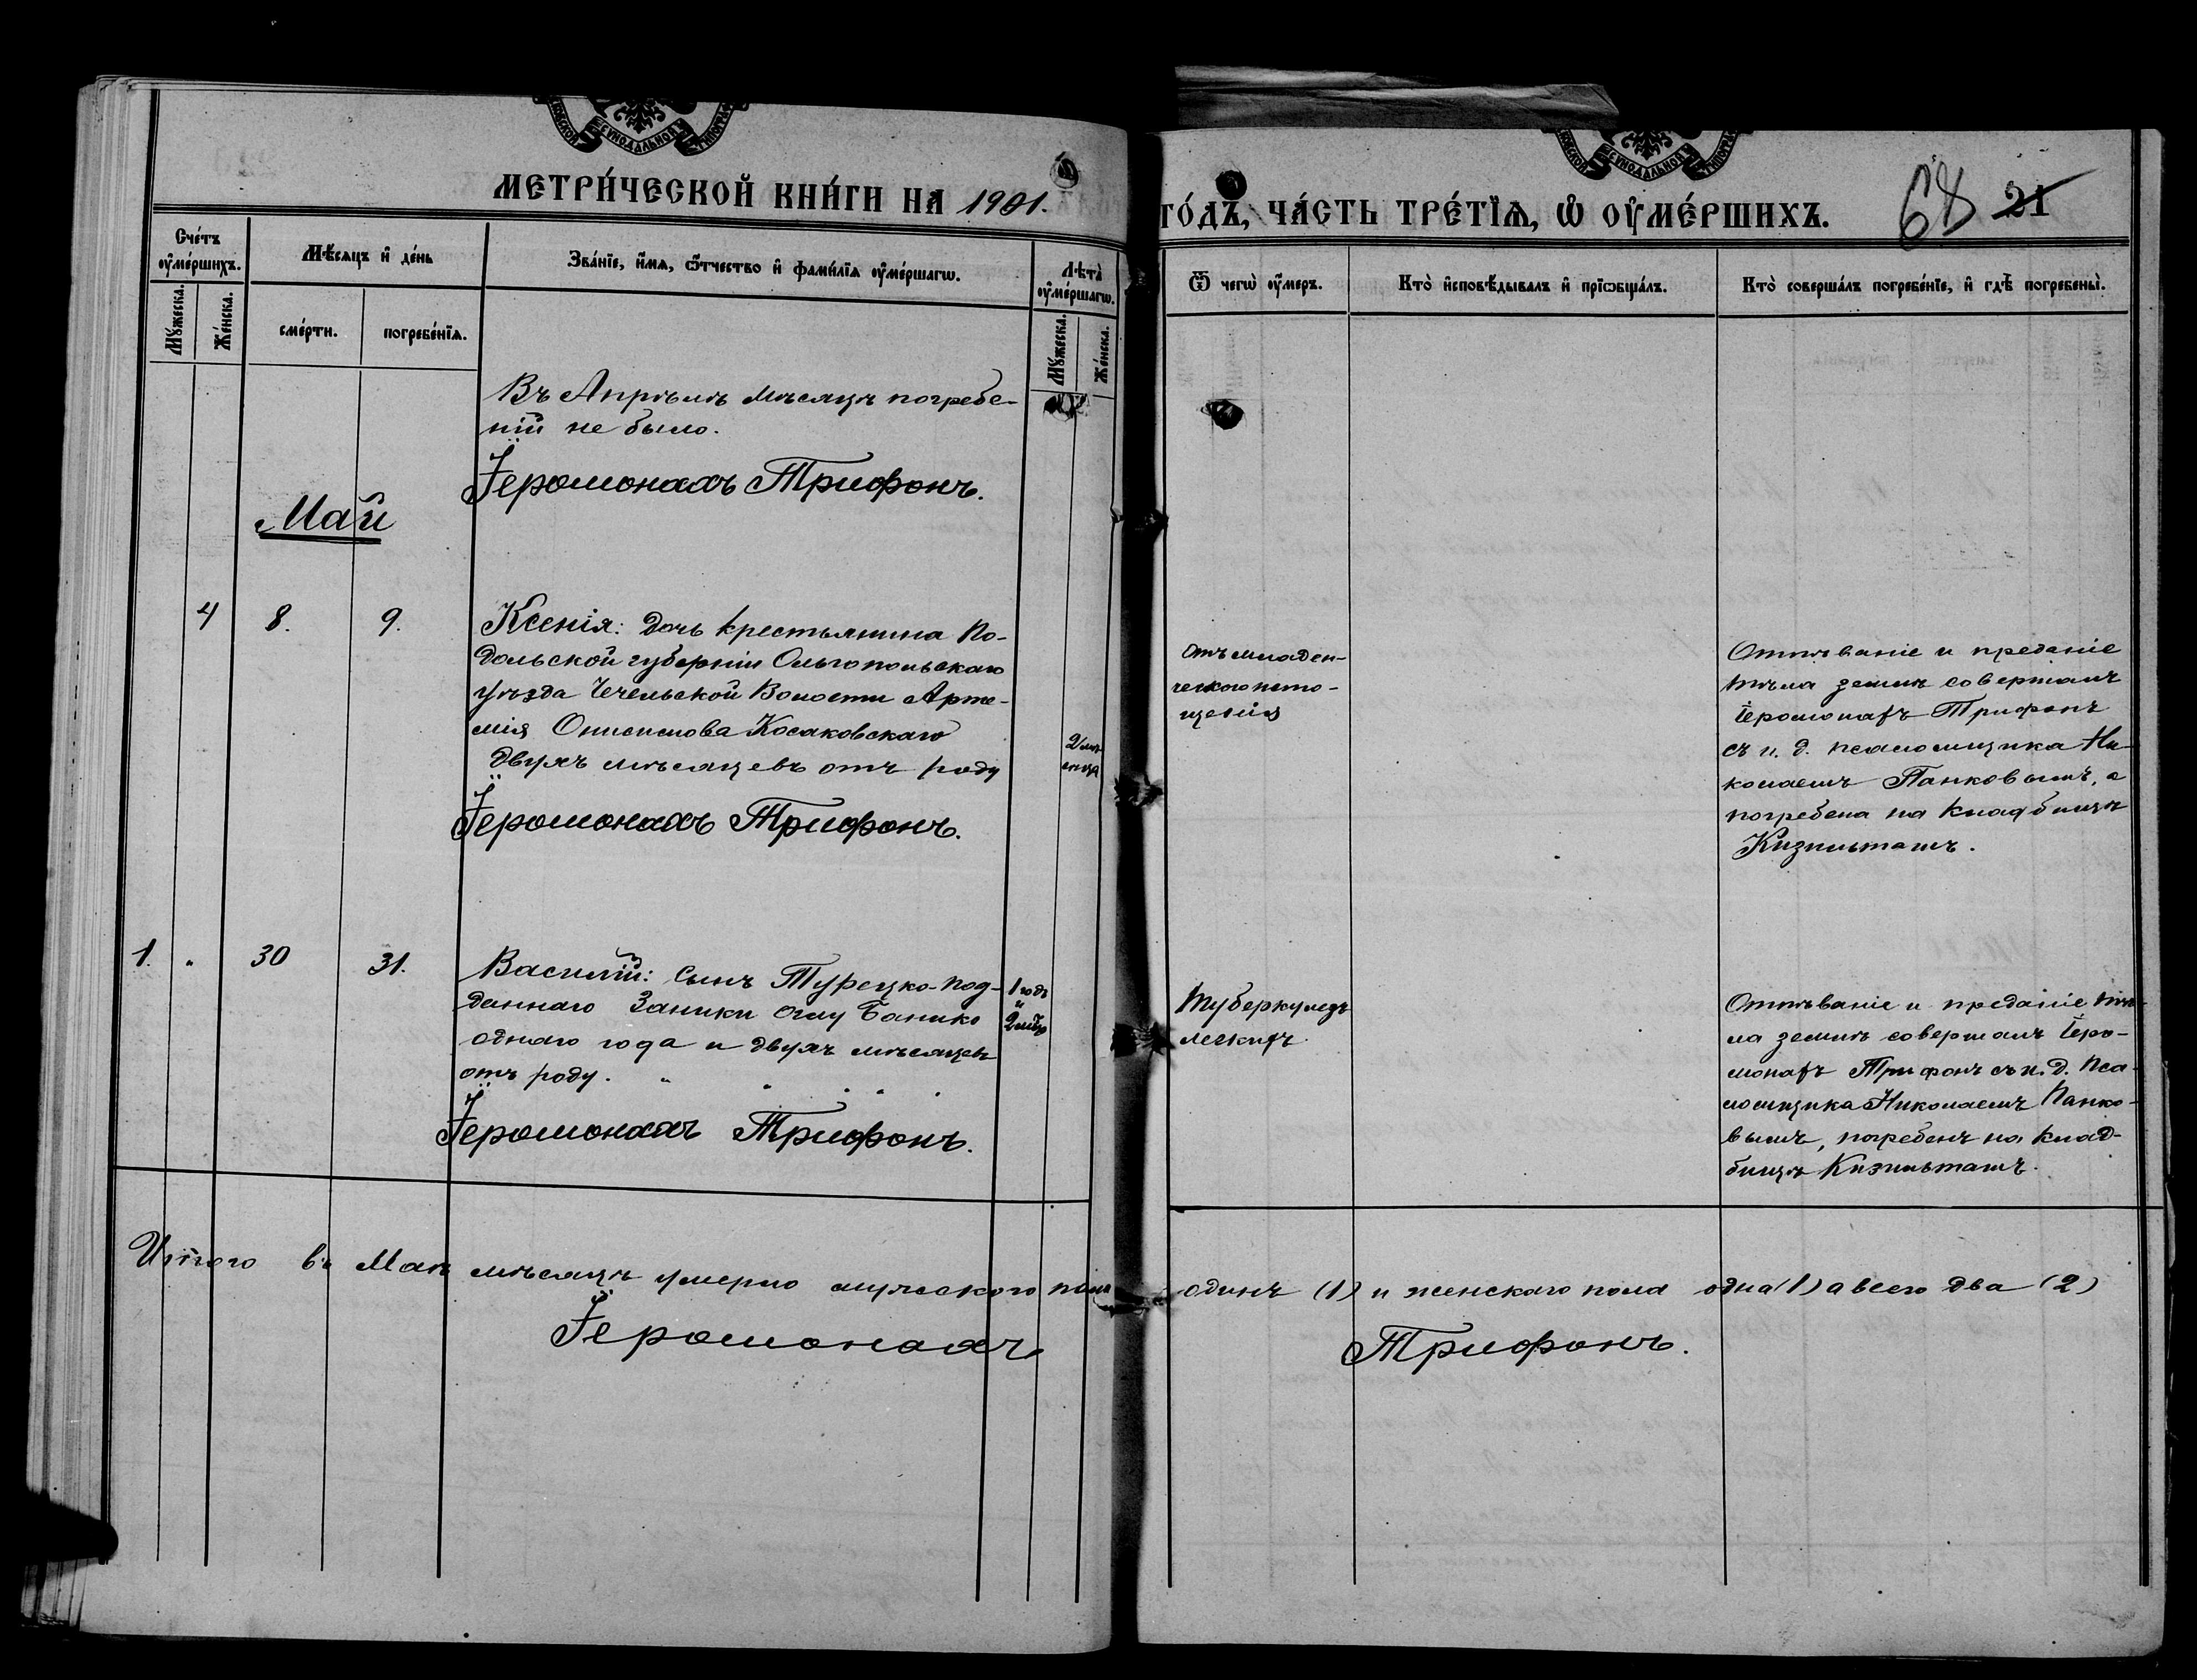 МЕТРИ́ЧЕСКОЙ КНИ́ГИ НА 1901.
Сче́тъ ᲂу҆ме́ршихъ.
Мꙋ́жеска.
Же́нска.
Мѣ́сяцъ и҆ де́нь
сме́рти.
погребе́нїѧ.
Зва́нїе, и҆́мѧ, ѻ҆́тчество и҆ фами́лїѧ ᲂу҆ме́ршагѡ.
Лѣ́та ᲂу҆ме́ршагѡ.
Мꙋ́жеска.
Же́нска.
Въ Апрѣлѣ мѣсяцѣ погребе-
ній не было.
Іеромонахъ Трифонъ.
Май
4 8. 9.
Ксенія: дочь крестьянина По-
дольской губерніи Ольгопольскаго
уѣзда Чечельской Волости Арте-
мія Онисимова Косаковскаго
двухъ мѣсяцевъ отъ роду
2 мѣ-
сяца
Іеромонахъ Трифонъ.
1. " 30 31.
Василій: сынъ Турецко-под-
даннаго Заники Оглу Банико
одного года и двухъ мѣсяцевъ
отъ роду.
1 годъ
2 мѣс
Іеромонахъ Трифонъ.
Итого въ Маѣ мѣсяцѣ умерло мужескаго пола
Іеромонахъ
ГО́ДЪ, ЧА́СТЬ ТРЕ́ТЇѦ, Ѡ҆ ОУ҆МЕ́РШИХЪ.
68 21
Ѿ чегѡ̀ ᲂу҆́меръ.
Кто̀ и҆сповѣ́дывалъ и҆ прїѡбща́лъ.
Кто̀ соверша́лъ погребе́нїе, и҆ гдѣ̀ погребены̀.
Отъ младен-
ческаго исто-
щенія
Отпѣваніе и преданіе
тѣла землѣ совершалъ
Іеромонахъ Трифонъ
съ и. д. псаломщика Ни-
колаемъ Панковымъ, а
погребена на кладбищѣ
Кизильташъ.
Туберкулезъ
легкихъ
Отпѣваніе и преданіе тѣ-
ла землѣ совершалъ Іеро-
монахъ Трифонъ съ и. д. Пса-
ломщика Николаемъ Панко-
вымъ, погребенъ на клад-
бищѣ Кизильташъ.
одинъ (1) и женскаго пола одна (1) а всего два (2)
Трифонъ.